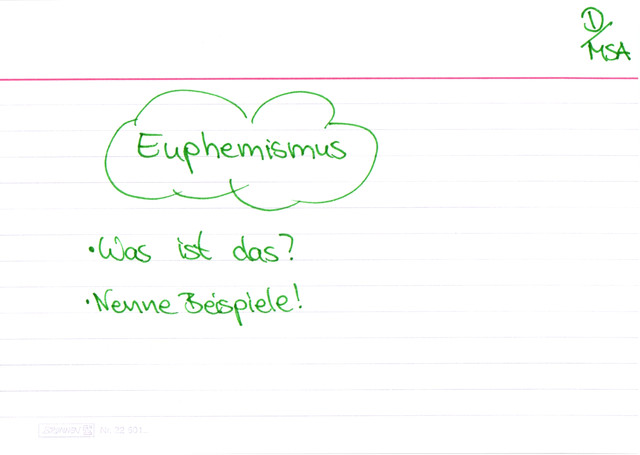 D
MSA
Euphemismus
• Was ist das?
• Nenne Beispiele!